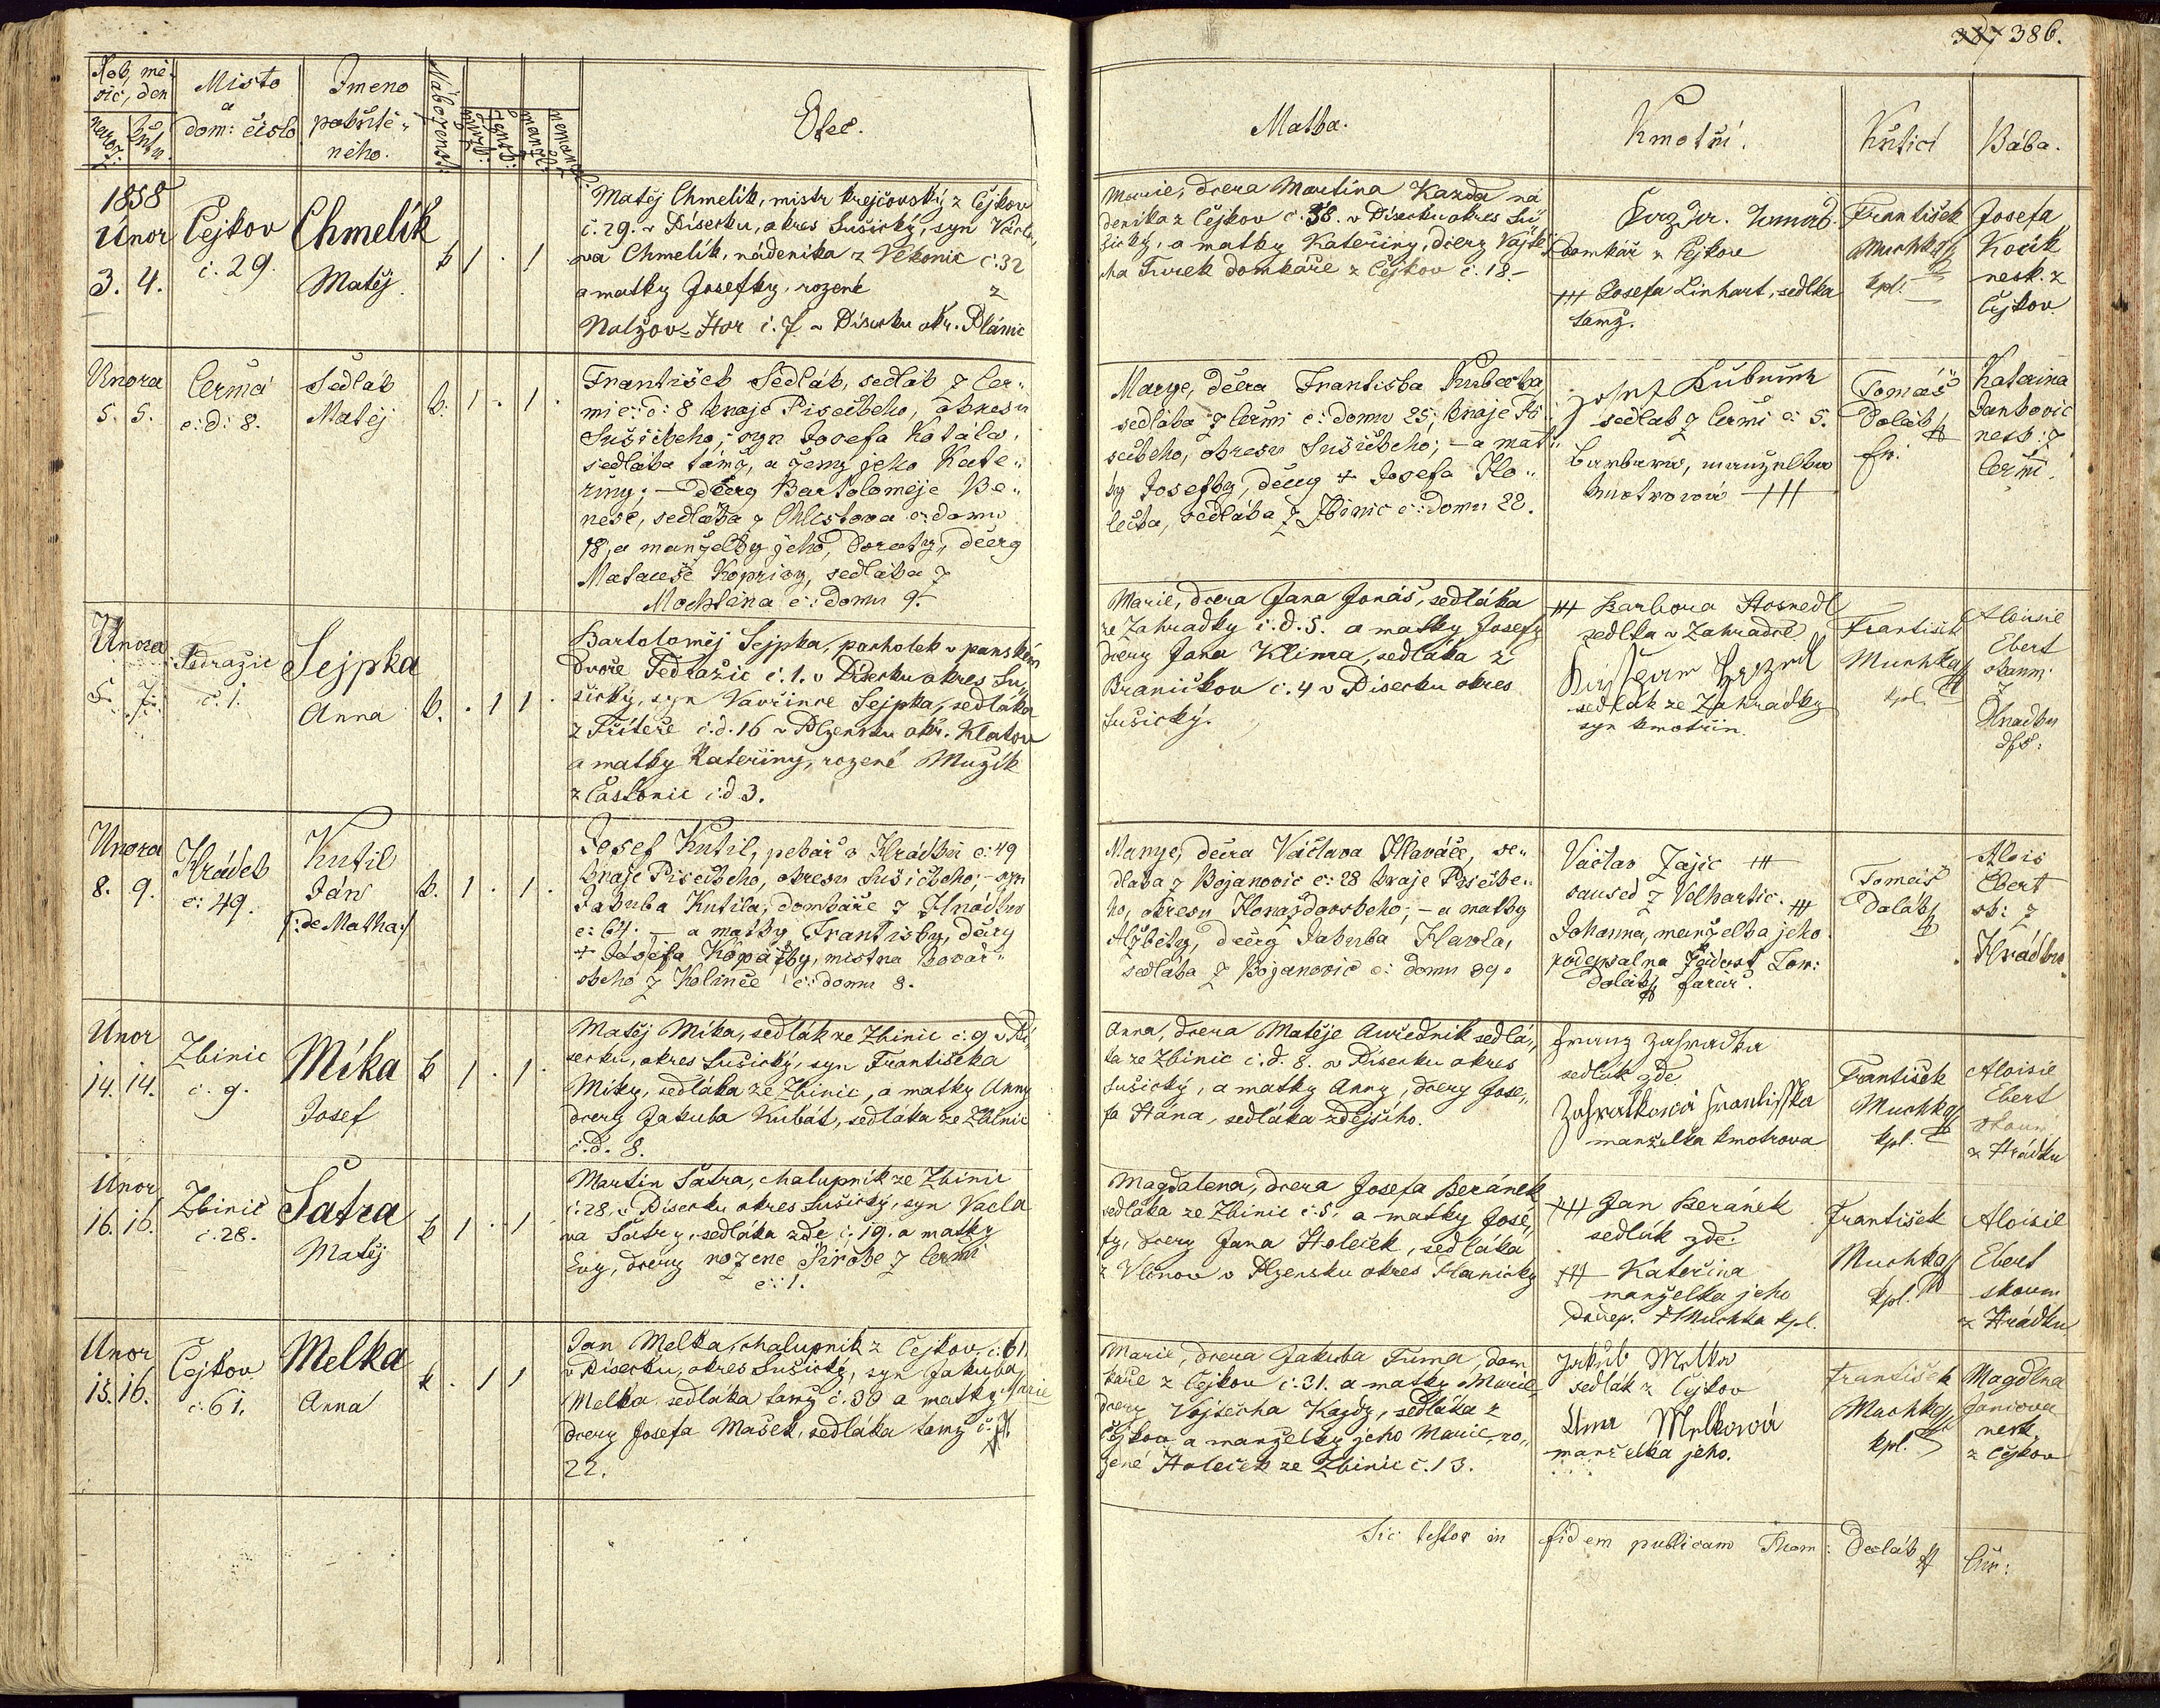 387 386.
Rob, mě-
síc, den
naroz: křtu.
Misto
a
dom: čislo
Jmeno
pokřtě-
ného.
Nábozenst:
mužs: žensk: manžel: nemanžel:
Otec.
Matka.
Kmotři.
Křtící
Bába.
1858
Únor
3. 4.
Čejkov
č. 29.
Chmelík
Matěj
k 1 . 1
Matěj Chmelík, mistr krejčovský z Čejkov
č. 29. v Písecku, okres Sušický, syn Václa
va Chmelík, nádeníka z Vekonic č. 32
a matky Josefky, rozené z
Nalžov-Hor č. 7. v Písecku okr. Plánic
Marie, dcera Martina Kazda ná
deníka z Čejkov č. 38. v Písecku okres Su
šický, a matky Kateřiny, dcery Vojtě
cha Turek domkáře z Čejkov č. 18.-
domkář z Čejkov
+++ Josefa Linhart, sedlka
tamž.
František
Muchka
kpl.
Josefa
Kocík
nesk. z
Čejkov.
Unora
5. 5.
Čermá
č: d: 8.
Sedlák
Matěj
k. 1 . 1 .
František Sedlák, sedlák z Čer-
mi č: d: 8 kraje Píseckeho, okresu
Sušickeho, syn Josefa Kotála,
sedláka támž, a ženy jeho Kate-
řiny; — dcery Bartoloměje Be-
neše, sedláka z Chlistova č: domu
18, a manželky jeho, Doroty, dcery
Matauše Kopřivy, sedláka z
Mochtína č: domu 9.
Marye, dcera Františka Kubecka
sedláka z Čermi č: domu 25, kraje Pí-
seckeho, okresu Sušickeho; — a mat-
ky Josefky, dcery + Josefa Ho-
lečka, sedláka z Zbinic č: domu 22.
sedlák z Čermi č: 5.
Barbara, manželka
kmotrová +++
Tomáš
Dolák
fr.
Kateřina
Jankovic
nesk: z
Čermi.
Února
5. 7.
Tedražic
č. 1.
Sejpka
Anna
k. . 1 1 .
Bartoloměj Sejpka, pacholek v panském
dvoře Tedražic č. 1. v Písecku okres Su
šický, syn Vavřince Sejpka, sedláka
z Třítěře č. d. 16 v Plzensku okr. Klatov
a matky Kateřiny, rozené Muzík
z Častonic č. d 3.
Marie, dcera Jana Jonáš, sedláka
ze Zahradky č. d. 5. a matky Josefy
dcery Jana Klíma, sedláka z
Braníčkov č. 4 v Písecku okres
Sušický.
+++ Barbora Hosnedl
sedlka v Zahradce
sedlák ze Zahrádky
syn kmotřin.
František
Muchka
kpl.
Aloisie
Ebert
skoum.
z
Hradku
Unora
8. 9.
Hrádek
č: 49.
Kutil
Ján
/: de Matha :/
k. 1 . 1 .
Josef Kutil, pekař v Hrádku č: 49
kraje Píseckeho, okresu Sušickeho; — syn
Jakuba Kutila, domkáře z Hrádku
č: 64: — a matky Františky, dcery
+ Josefa Kopáčky, mistra kovař-
skeho z Kolince č: domu 8.
Marye, dcera Václava Hlaváče, se-
dláka z Bojanovic č: 28 kraje Písecke-
ho, okresu Horažďovskeho; — a matky
Alžběty, dcery Jakuba Havla,
sedláka z Bojanovic č: domu 29.
Václav Zajíc +++
saused z Velhartic. +++
Johanna, manželka jeho
podepsal na žádost Tom:
Dolák farář.
Tomáš
Dolák
Alois
Ebert
sk: z
Hrádku.
Únor
14. 14.
Zbinic
č. 9.
Míka
Josef
k 1 . 1 .
Matěj Míka, sedlák ze Zbinic č. 9 v Pí-
secku, okres Sušický, syn Františeka
Míky, sedláka ze Zbinic, a matky Anny
dcery Jakuba Kubát, sedláka ze Zbinic
č. d. 8.
Anna, dcera Matěje Auředník sedlá-
ka ze Zbinic č. d. 8. v Písecku okres
Sušický, a matky Anny, dcery Jose-
fa Hána, sedláka zdejšího.
Franz Zahradka
sedlak zde.
Zahratková Frantisska
manželka kmotrova
František
Muchka
kpl.
Aloisie
Ebert
skoum.
z Hrádku
Únor
16. 16.
Zbinic
č. 28.
Šatra
Matěj
k 1 . 1 .
Martin Šatra, chalupník ze Zbinic
č. 28. v Písecku okres Sušický, syn Václa
va Šatry, sedláka zde č. 19. a matky
Evy, dcery rozene Pirohe z Čermi
č: 1.
Magdalena, dcera Josefa Beránek
sedláka ze Zbinic č. 5. a matky Jose-
fy, dcery Jana Holeček, sedláka
z Vlčnov v Plzensku okres Planický
+++ Jan Beránek
sedlák zde.
+++ Kateřina
manželka jeho
podep. F Muchka kpl.
František
Muchka
kpl.
Aloisie
Ebert
skoum
z Hrádku
Únor
15. 16.
Čejkov
č. 61.
Melka
Anna
k . 1 1
Jan Melka, chalupník z Čejkov, č. 61.
v Písecku, okres Sušický, syn Jakuba
Melka sedláka tamž č. 30 a matky Marie
dcery Josefa Mašek, sedláka tamž č.
22.
Marie, dcera Jakuba Tuma, dom
káře z Čejkov č. 31. a matky Marie,
dcery Vojtěcha Kazdy, sedláka z
Čejkov a manželky jeho Marie, ro-
zené Holeček ze Zbinic č. 13.
Jakub Melka
sedlák z Čejkov
Anna Melková
manželka jeho.
František
Muchka
kpl.
Magdlna
Janiova
nesk.
z Čejkov
Sic testor in fidem publicam Thom: Dolák Cur: